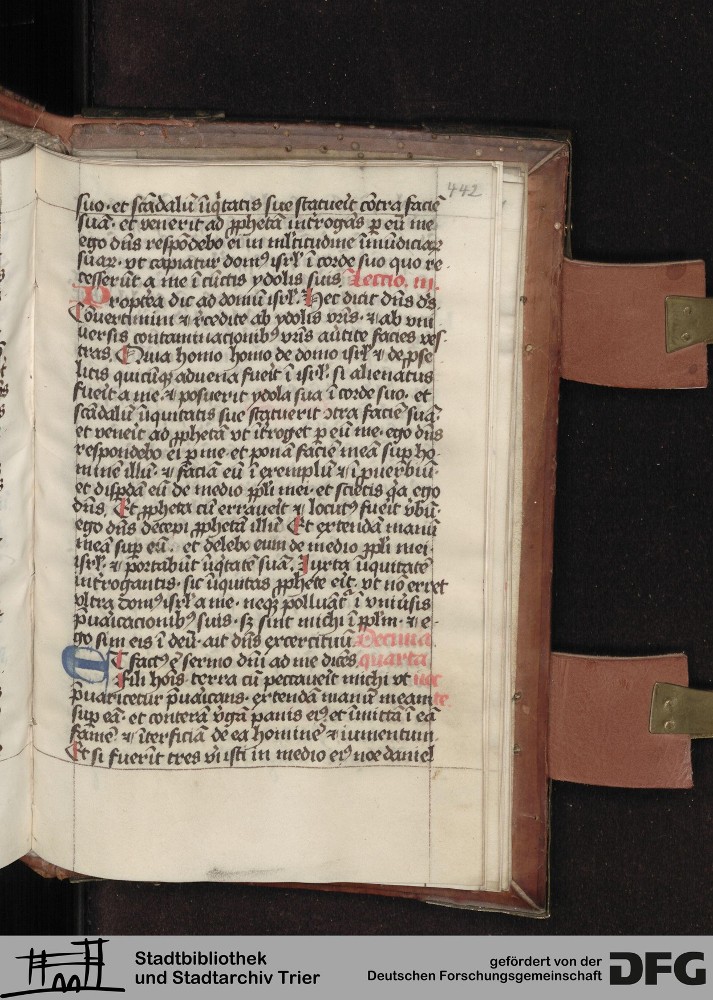 442
suo · et scādalū īiq̄tatis sue statueīt cōtra faciē
suā · et venerit ad ꝓphetā int̄rogās p eū me
ego dn̄s respōdebo ei in ml̄titudine īmūdiciaꝝ
suaꝝ · vt capiatur domꝰ isrl̄ ī corde suo quo re
cesserūt a me ī cūctis ydolis suis Lectio · iii ·
Propt̄ea dic ad domū isrl̄ · Hec dicit dn̄s d̄s
Cōuertimini ⁊ r̄cedite ab ydolis vr̄is · ⁊ ab vni
uersis contaminacionibꝰ vr̄is au̇tite facies ves
tras · Quia homo homo de domo isrl̄ ⁊ de p̄se
litis quicūqꝫ aduena fueīt ī isrl̄ · si alienatus
fueīt a me · ⁊ posuerit ydola sua ī corde suo · et
scādalū īiquitatis sue statuerit ↄtra faciē suā ·
et veneīt ad ꝓphetā vt īt̄roget p eū me · ego dn̄s
respondebo ei p me · et ponā faciē meā sup ho
minē illū · ⁊ faciā eū ī exemplū ⁊ ī ꝓuerbiū ·
et disp̄dā eū de medio ppl̄i mei · et scietis q̄a ego
dn̄s · Et ꝓpheta cū erraveīt ⁊ locutꝰ fueīt v̄bū ·
ego dn̄s decepi ꝓphetā illū Et extendā manū
meā sup eū · et delebo eum de medio ppl̄i mei ·
isrl̄ · ⁊ portabūt īiq̄tatē suā · Iuxta īiquitatē
int̄rogantis · sic īiquitas ꝓphete eīt · vt nō erret
vltra domꝰ isrl̄ a me · neqꝫ polluāt̄ ī vniūsis
p̄uaīcacionibꝰ suis · sꝫ sint michi ī ppl̄m · ⁊ e ·
go sim eis ī deū · ait dn̄s exercituū · Decima
Et factꝰ ē sermo dn̄i ad me dicēs quarta
Fili hoīs · terra cū peccaveīt michi vt
p̄uaricetur p̄uaīcans · extendā manū meam
sup eā · et conterā v̄gā panis eiꝰ et īmittā ī eā
famē · ⁊ īterficiā de ea hominē ⁊ iumentum ·
Et si fuerīt tres vi isti in medio eiꝰ noe daniel
Stadtbibliothek
und Stadtarchiv Trier
gefördert von der
Deutschen Forschungsgemeinschaft DFG